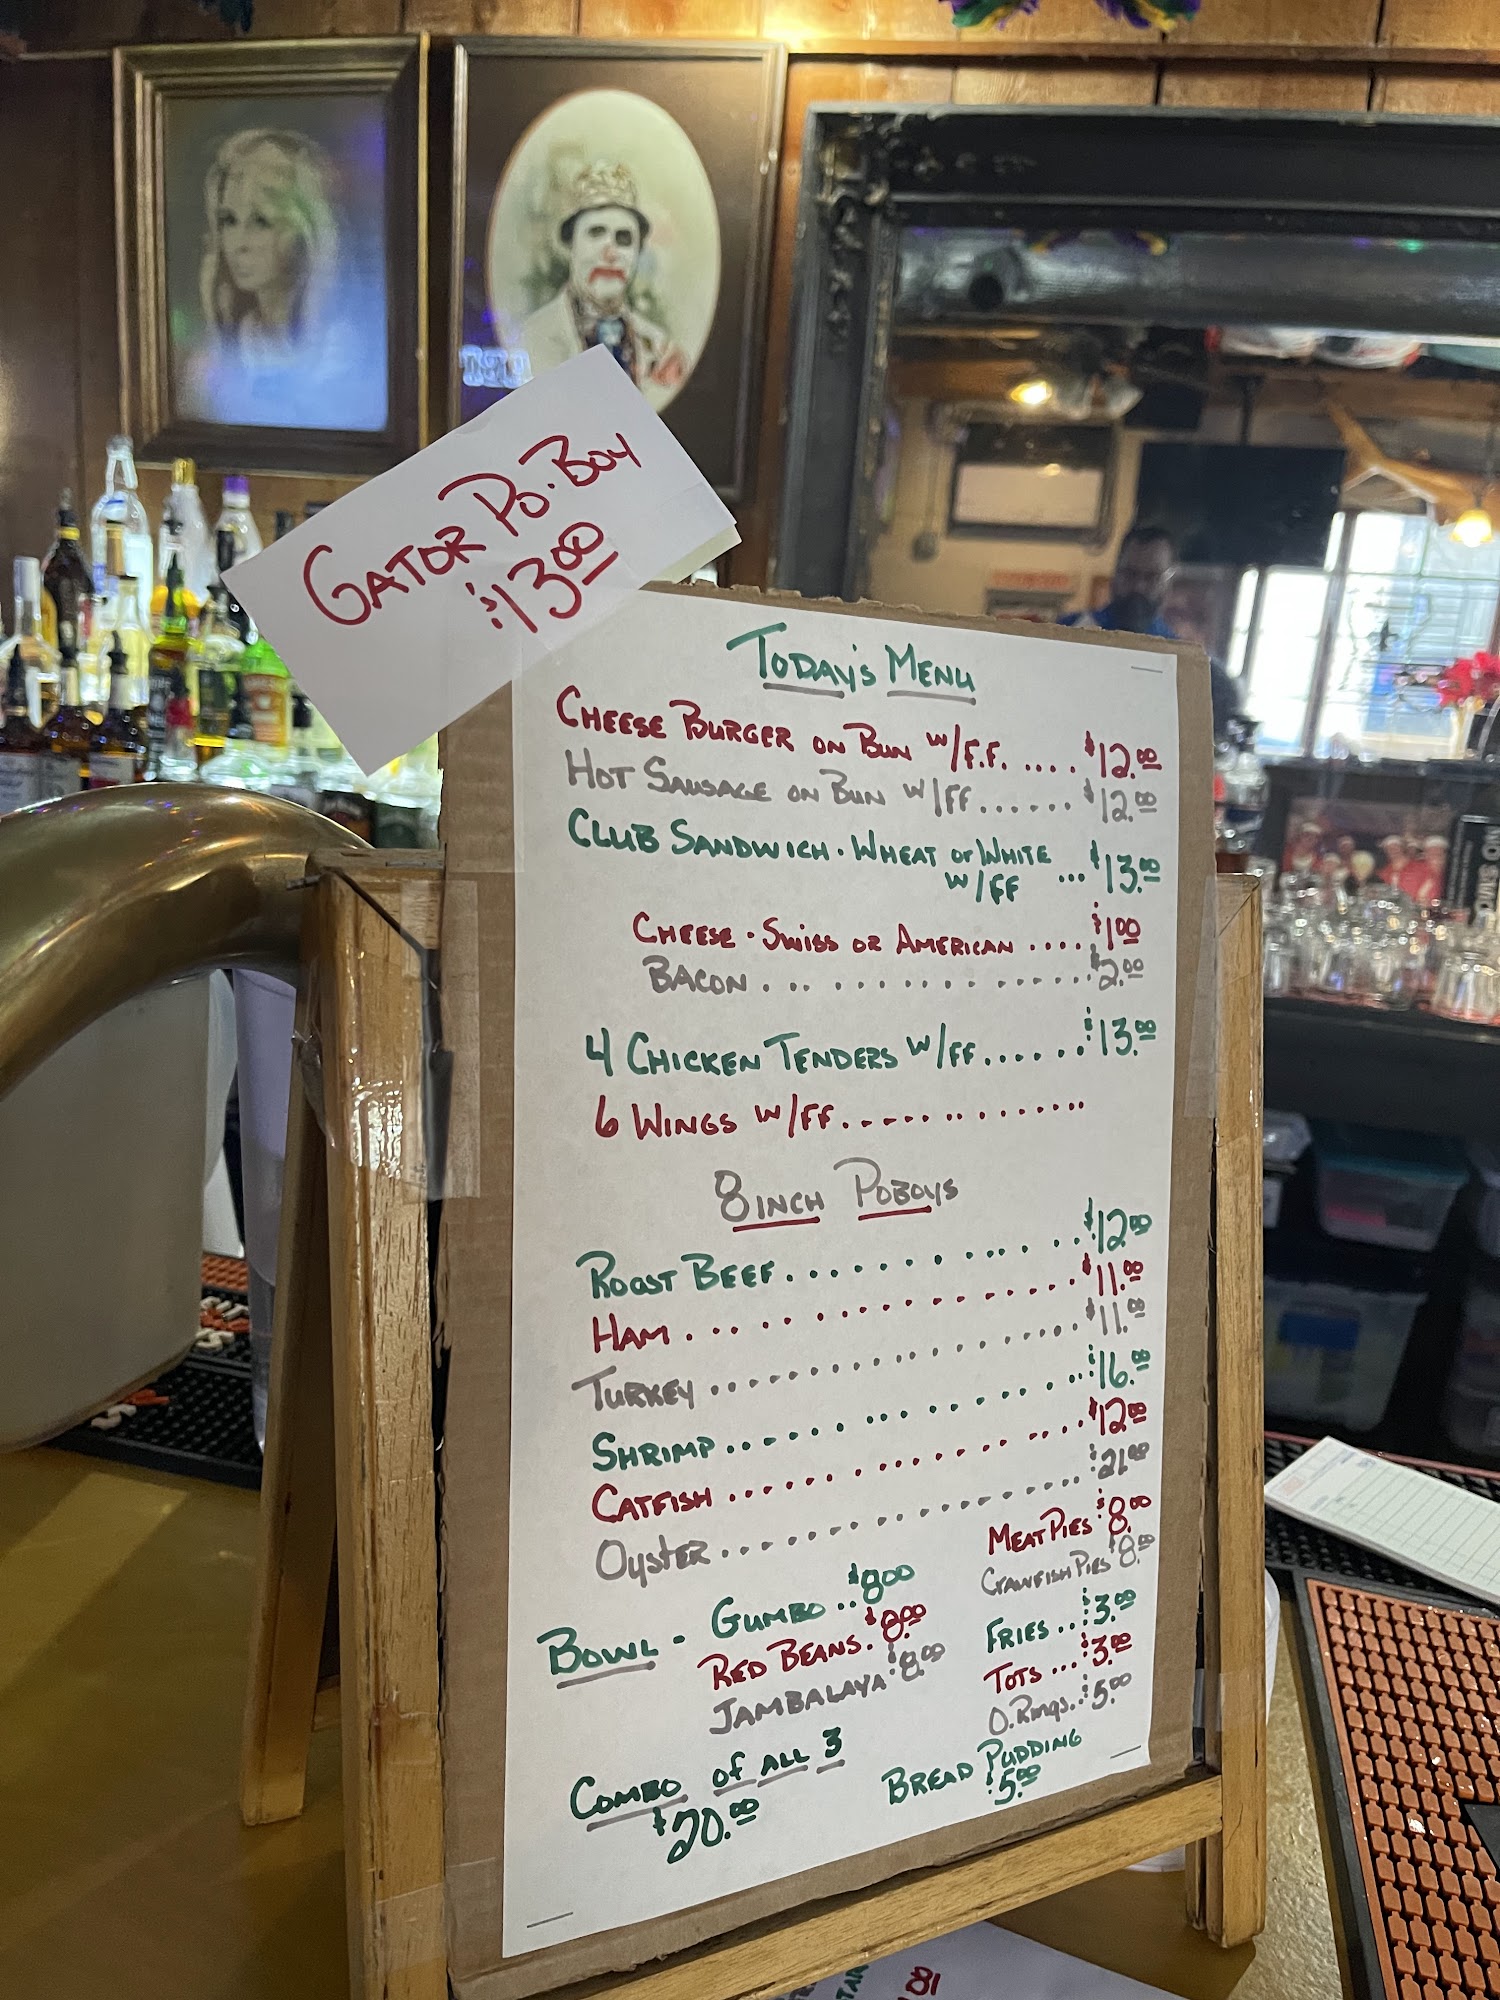 GATOR PO-BOY
$13.00
TODAY'S MENU
CHEESE BURGER ON BUN W/F.F. .... $12.00
HOT SAUSAGE ON BUN W/FF...... $12.00
CLUB SANDWICH · WHEAT or WHITE ... $13.00
W/FF
CHEESE · SWISS OR AMERICAN .... $1.00
BACON .............. $2.00
4 CHICKEN TENDERS W/FF...... $13.00
6 WINGS W/FF.............
8 INCH POBOYS
ROAST BEEF .............. $12.00
HAM .................. $11.00
TURKEY .................. $11.00
SHRIMP ................ $16.00
CATFISH ................. $12.00
OYSTER ................. $21.00
MEAT PIES $8.00
CRAWFISH PIES $8.00
BOWL - GUMBO .. $8.00
RED BEANS . $8.00
JAMBALAYA $8.00
FRIES ... $3.00
TOTS ... $3.00
O. Rings .. $5.00
COMBO of ALL 3
$20.00
BREAD PUDDING
$5.00